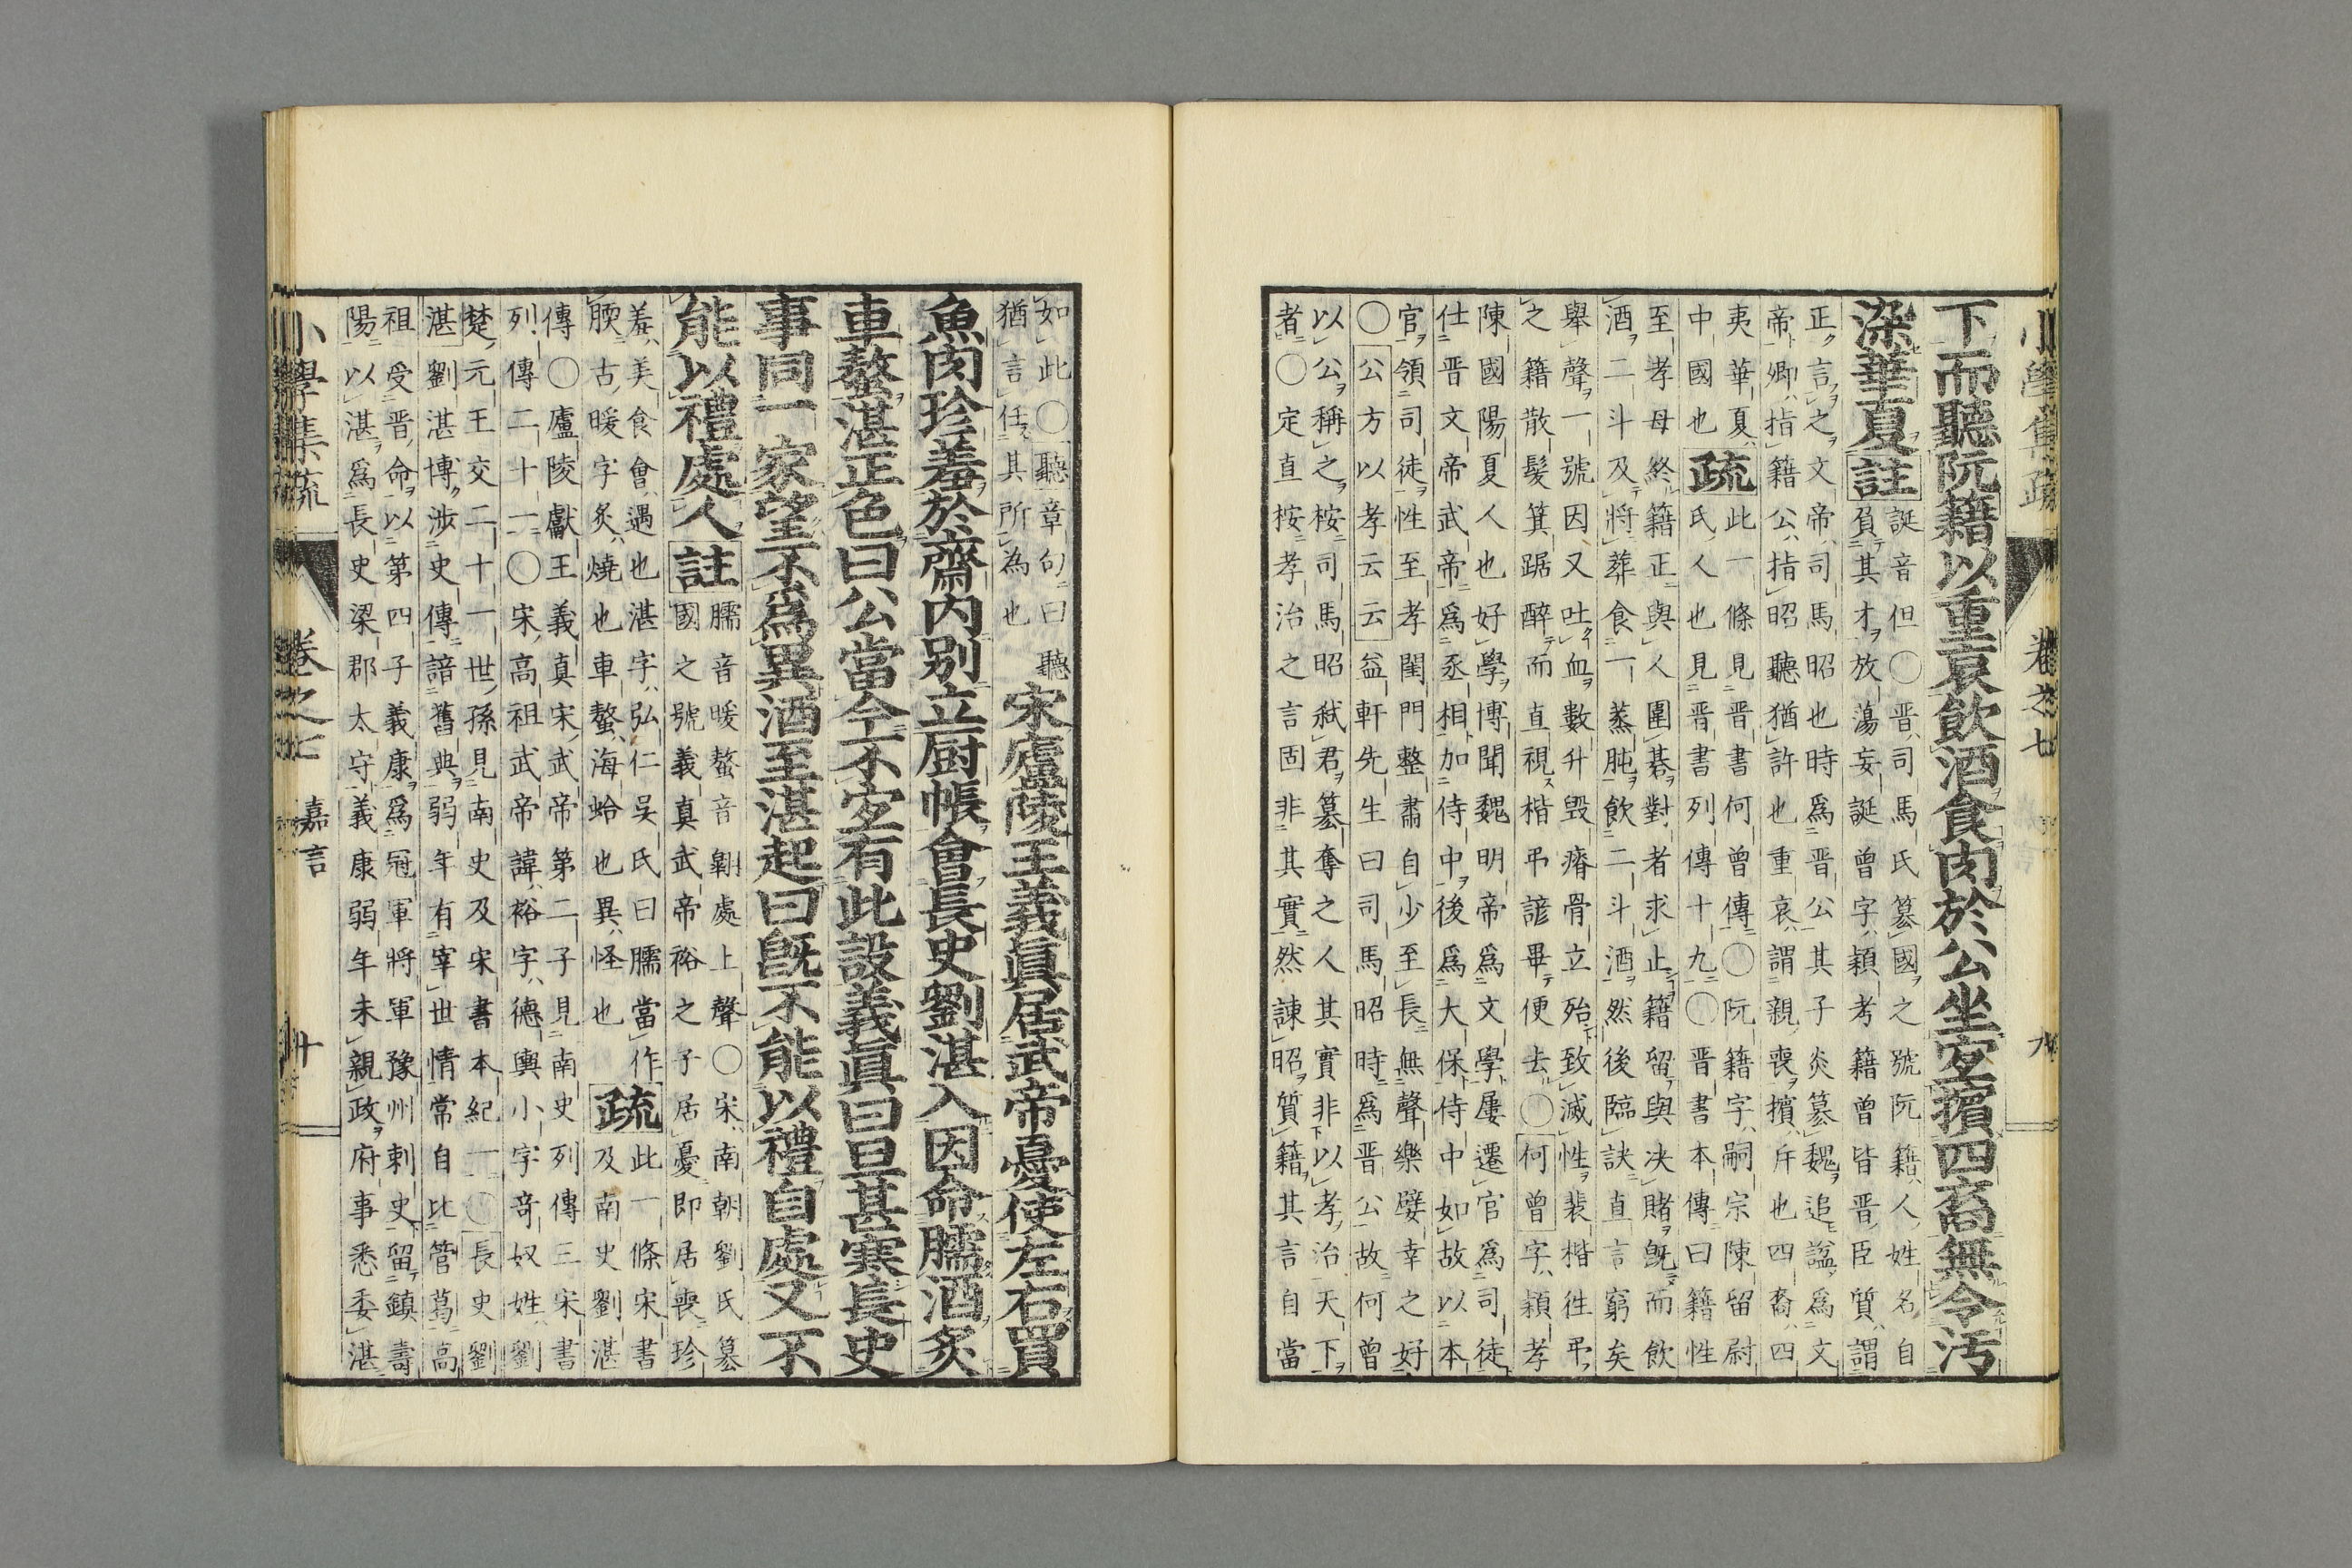 下而聽阮籍以重哀飲酒食肉於公坐冝擯四裔無令汚
染華夏註
誕音但○晋司馬氏簒國之號阮籍人姓名自
負其才放蕩妄誕曾字穎考籍曾皆晋臣質謂
正言之文帝司馬昭也時爲晋公其子炎簒魏追諡爲文
帝卿指籍公指昭聽猶許也重哀謂親喪擯斥也四裔四
夷華夏中國也
疏
此一條見晋書何曾傳○阮籍字嗣宗陳留尉
氏人也見晋書列傳十九○晋書本傳曰籍性
至孝母終籍正與人圍碁對者求止籍留與决賭既而飲
酒二斗及將葬食一蒸肫飲二斗酒然後臨訣直言窮矣
舉聲一號因又吐血數升毀瘠骨立殆致滅性裴楷往弔
之籍散髮箕踞醉而直視楷弔諺畢便去○何曾字穎孝
陳國陽夏人也好學博聞魏明帝爲文學屢遷官爲司徒
仕晋文帝武帝爲丞相加侍中後爲大保侍中如故以本
官領司徒性至孝閨門整肅自少至長無聲樂嬖幸之好
○公方以孝云云益軒先生曰司馬昭時爲晋公故何曾
以公稱之桉司馬昭弑君簒奪之人其實非以孝治天下
者○定直桉孝治之言固非其實然諌昭質籍其言自當
如此○聽章句曰聽
猶言任其所為也
宋廬陵王義眞居武帝憂使左右買
魚肉珍羞於齋内别立厨帳會長史劉湛入因命臑酒炙
車螯湛正色曰公當今不冝有此設義眞曰旦甚寒長史
事同一家望不爲異酒至湛起曰旣不能以禮自處又不
能以禮處人註
臑音暖螯音翺處上聲○宋南朝劉氏簒
國之號義真武帝裕之子居憂即居喪珍
羞美食會遇也湛字弘仁吳氏曰臑當作
腝古暖字炙燒也車螯海蛤也異怪也
疏
此一條宋書
及南史劉湛
傳○廬陵獻王義真宋武帝第二子見南史列傳三宋書
列傳二十一○宋高祖武帝諱裕字德輿小字竒奴姓劉
楚元王交二十一世孫見南史及宋書本紀一○長史劉
湛劉湛博渉史傳諳舊典弱年有宰世情常自比管葛高
祖受晋命以第四子義康爲冠軍將軍豫州剌史留鎮壽
陽以湛爲長史梁郡太守義康弱年未親政府事悉委湛
小學集疏
卷之七
嘉言
十
卷之七
九